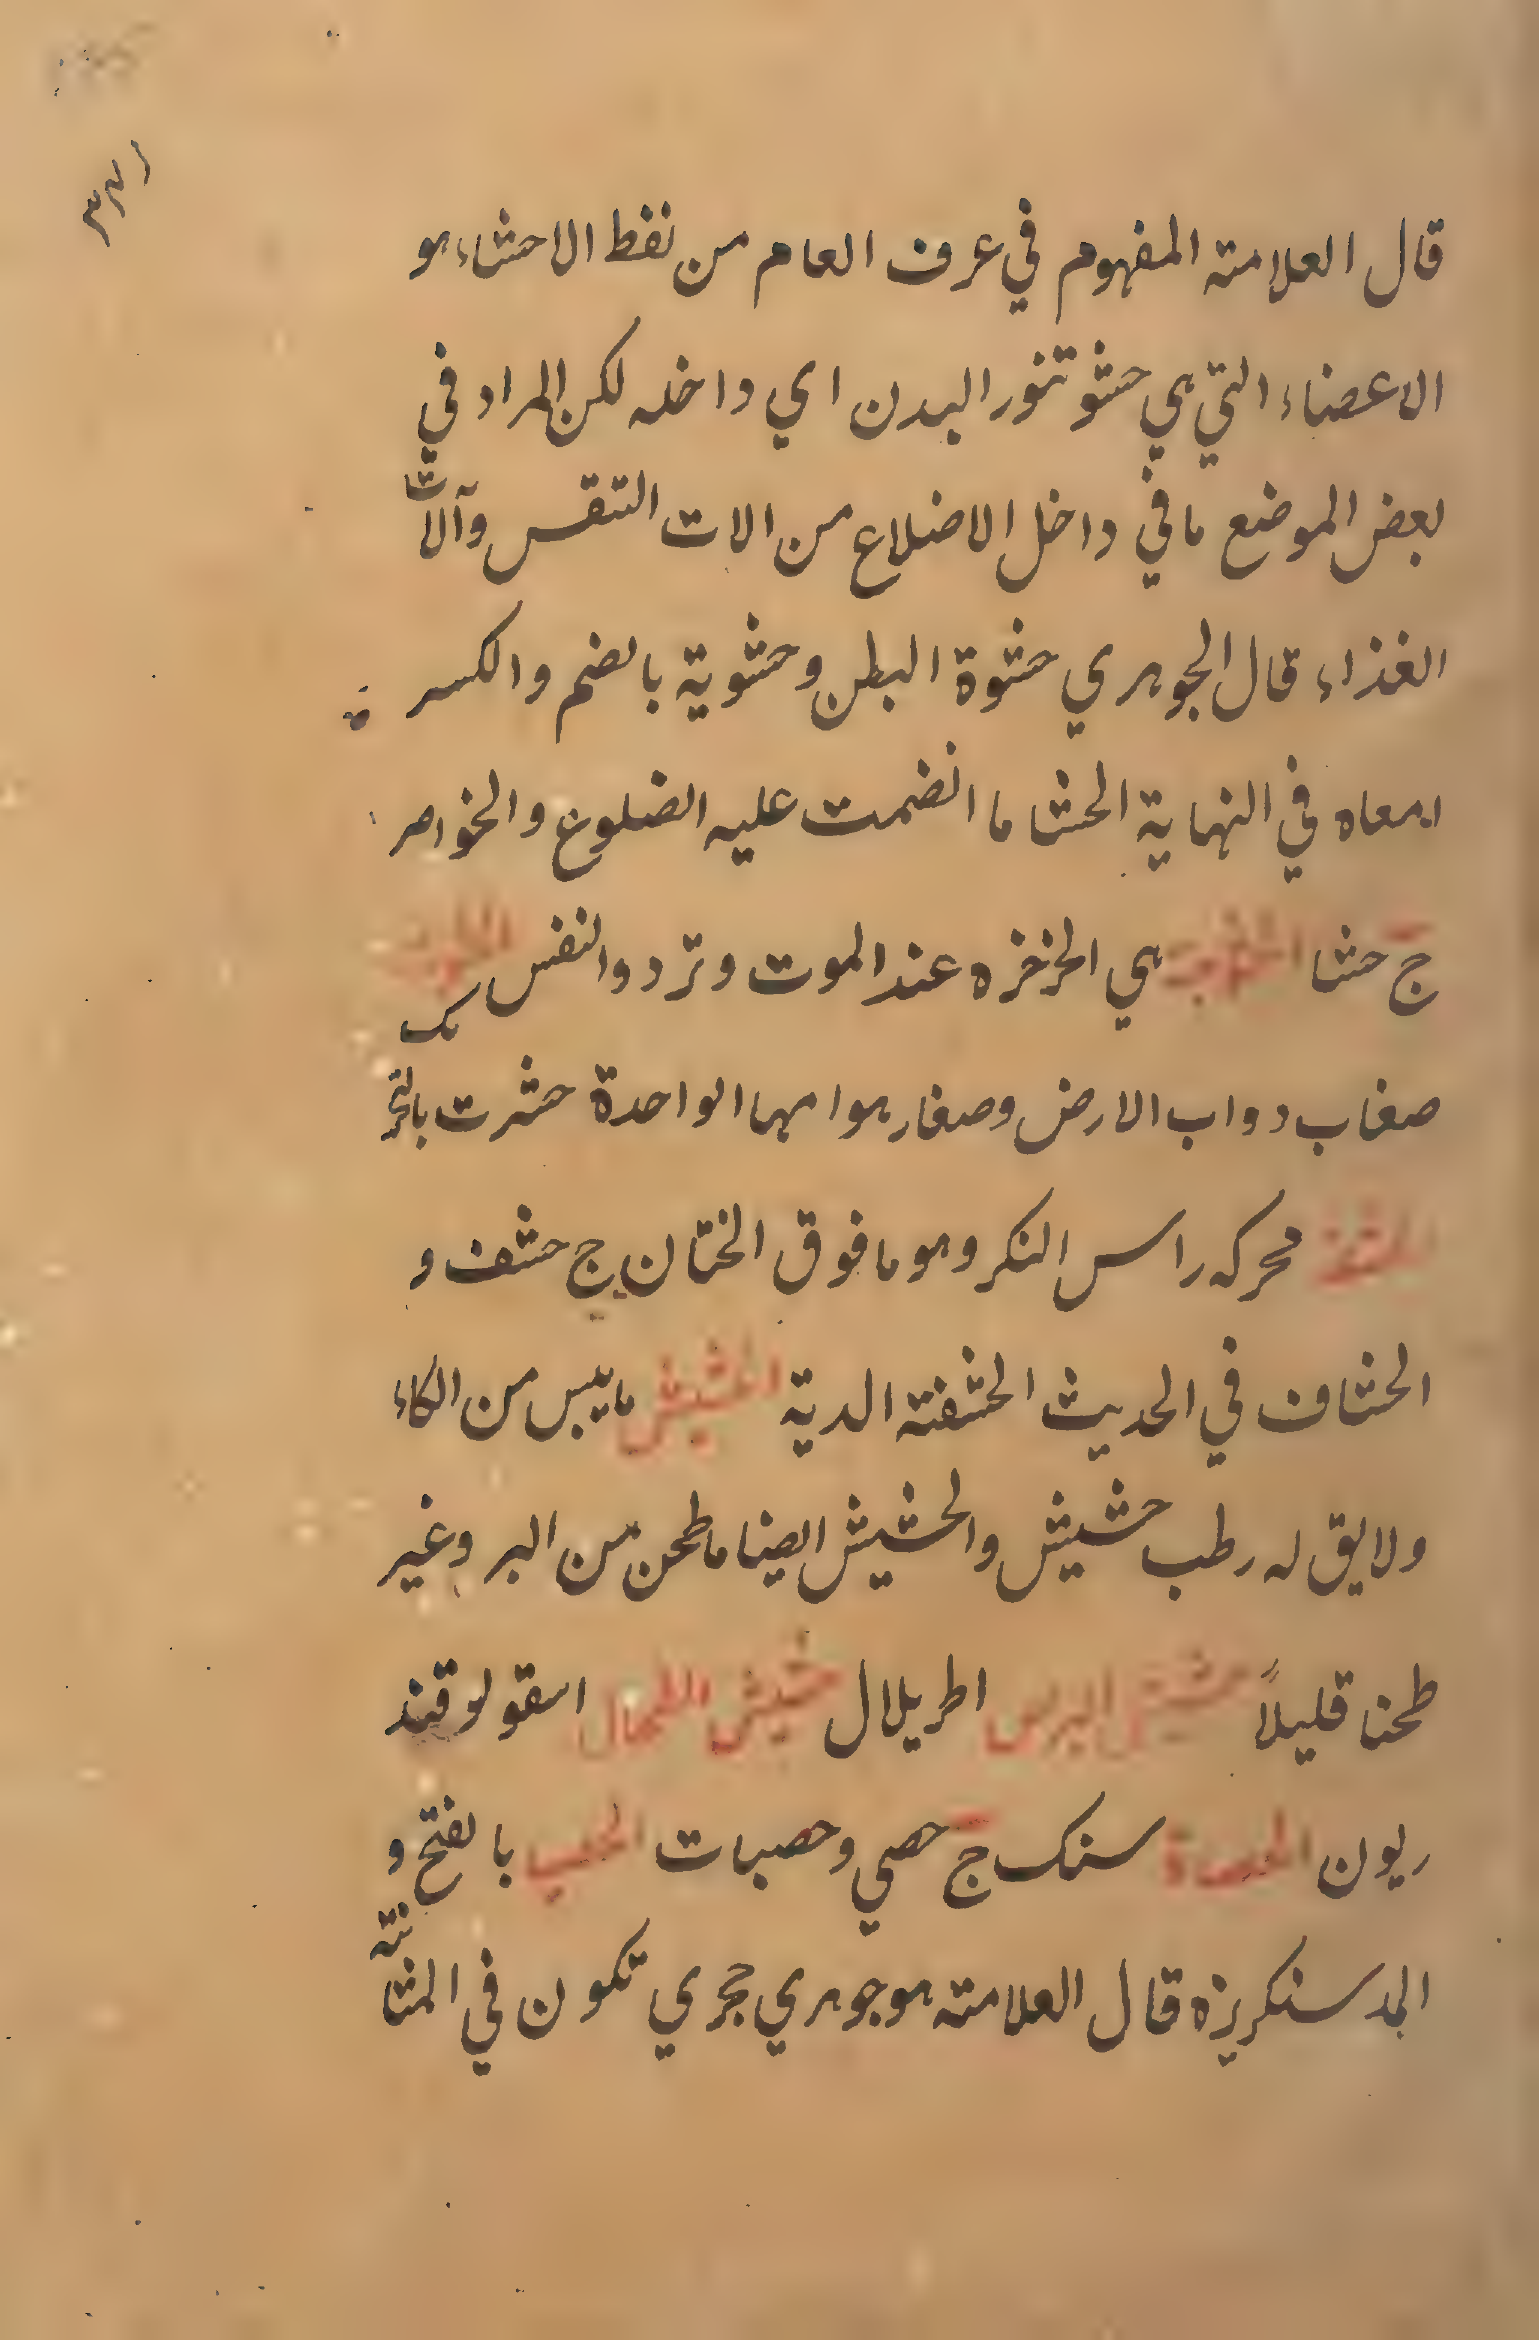 قال العلامته المفهوم في عرف العام من نفظ الاحشاء هو
الاعضاء التي هي حشو تنور البدن اي داخله لكن المراد في
بعض الموضع ما في داخل الاضلاع من الات التنفس وآلات
الغذاء قال الجوهري حشوة البطن وحشوية بالضم والكسر
امعاه في النهاية الحشا ما انضمت عليه الضلوع والخواصر
ج حشا هي الخرخره عند الموت وتردد النفس
صغاب دواب الارض وصغار هوامها الواحدة حشرت بالتحر يک
محركه راس الذكر وهو ما فوق الختان ج حشف و
الحشاف في الحديث الحشفته الدية الحشيش ما يبس من الكاء
ولا يق له رطب حشيش والحشيش ايضا ما طحن من البر وغير
طحنا قليلاً حشيش البرص اطريلال حشيش الطحال اسقولوقند
ريون الحصاة سنک ج حصي وحصبات الحصب بالفتح و
المد سنكريزه قال العلامته هو جوهري حجري تكون في المثانته